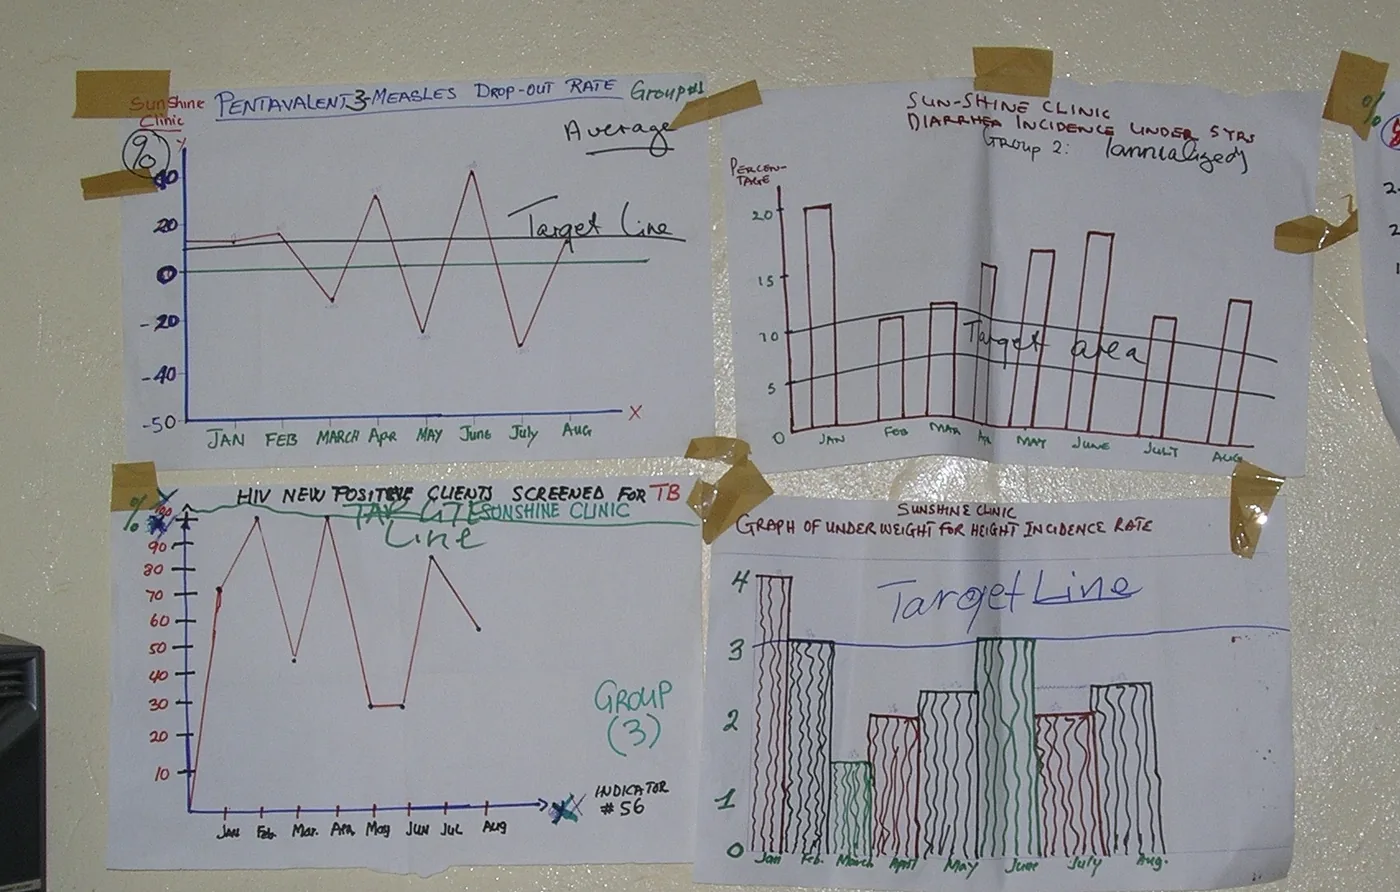 Sunshine Clinic
PENTAVALENT 3-MEASLES DROP-OUT RATE Group #1
%
Y
Average
40
20
Target Line
0
-20
-40
-50
X
JAN FEB MARCH Apr MAY June July Aug
SUN-SHINE CLINIC
DIARRHEA INCIDENCE UNDER 5 YRS
Group 2: (annualized)
PERCEN-
TAGE
20
15
10
Target area
5
0
JAN FEB MAR APR MAY JUNE JULY AUG
%
HIV NEW POSITIVE CLIENTS SCREENED FOR TB
SUNSHINE CLINIC
Line
100
90
80
70
60
50
40
30
20
10
GROUP
(3)
INDICATOR
#56
X
JAN Feb. Mar. Apr. May JUN JUL AUG
SUNSHINE CLINIC
GRAPH OF UNDER WEIGHT FOR HEIGHT INCIDENCE RATE
4
Target Line
3
2
1
0
Jan Feb. March April May June July Aug.
%